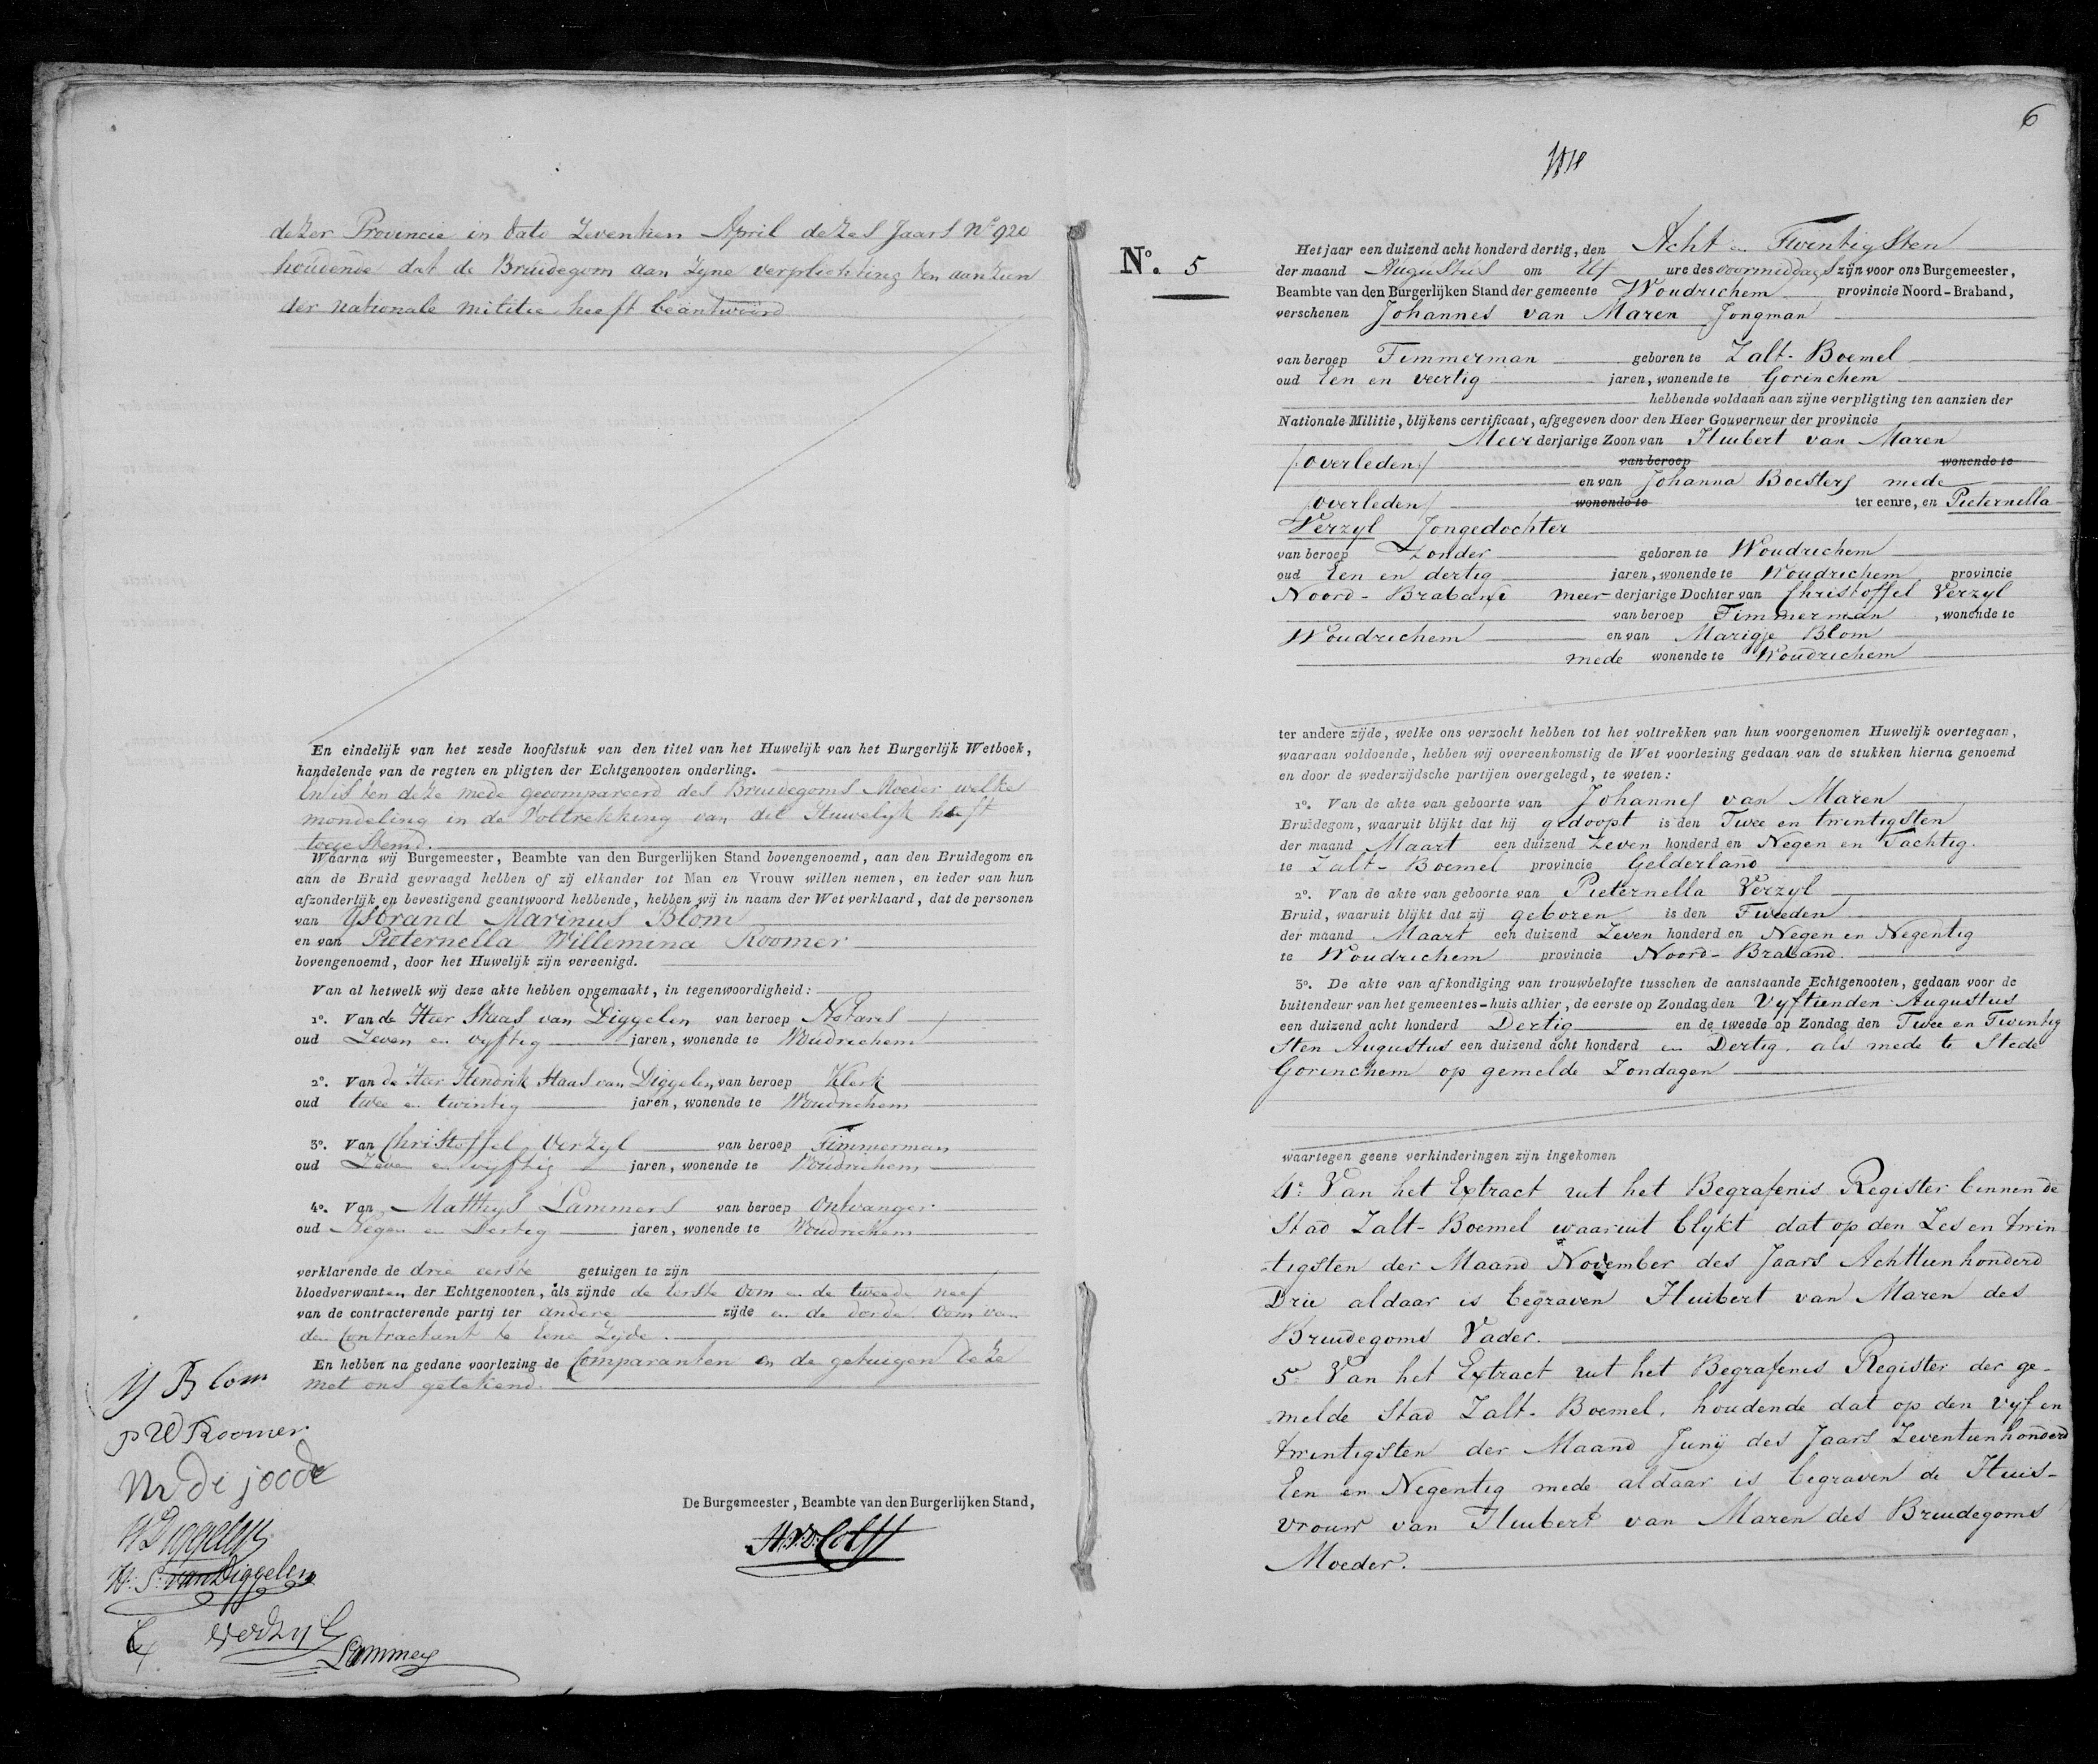 dezer Provincie in dato Zeventien April dezes Jaars No 920
houdende dat de Bruidegom aan zyne verplichting ten aanzien
der nationale militie heeft beantwoord
En eindelijk van het zesde hoofdstuk van den titel van het Huwelijk van het Burgerlijk Wetboek,
handelende van de regten en pligten der Echtgenooten onderling.
En is ten deze mede gecompareerd des Bruidegoms Moeder welke
mondeling in de Voltrekking van dit Huwelyk heeft
toegestemd.
Waarna wij Burgemeester, Beambte van den Burgerlijken Stand bovengenoemd, aan den Bruidegom en
aan de Bruid gevraagd hebben of zij elkander tot Man en Vrouw willen nemen, en ieder van hun
afzonderlijk en bevestigend geantwoord hebbende, hebben wij in naam der Wet verklaard, dat de personen
van Ysbrand Marinus Blom
en van Pieternella Willemina Roomer
bovengenoemd, door het Huwelijk zijn vereenigd.
Van al hetwelk wij deze akte hebben opgemaakt, in tegenwoordigheid:
1o. Van de Heer Staas van Diggelen van beroep Notaris
oud Zeven en vyftig jaren, wonende te Woudrichem
2o. Van de Heer Hendrik Staas van Diggelen, van beroep Klerk
oud twee en twintig jaren, wonende te Woudrichem
3o. Van Christoffel Verzyl van beroep Timmerman
oud Zeven en vyftig jaren, wonende te Woudrichem
4o. Van Matthys Lammers van beroep Ontvanger
oud Negen en Dertig jaren, wonende te Woudrichem
verklarende de drie eerste getuigen te zijn
bloedverwanten, der Echtgenooten, als zijnde de eerste Oom en de tweede neef
van de contracterende partij ter andere zijde en de derde Oom van
den Contractant te eene Zyde.
En hebben na gedane voorlezing de Comparanten en de getuigen deze
met ons getekend.
Y Blom
P W Roomer
M de joode
S V Diggelen
H: S: van Diggelen
C Verzyl
Lammers
De Burgemeester, Beambte van den Burgerlijken Stand,
6
No. 5
Het jaar een duizend acht honderd dertig, den Acht en Twintigsten
der maand Augustus om Elf ure des voormiddags zijn voor ons Burgemeester,
Beambte van den Burgerlijken Stand der gemeente Woudrichem provincie Noord-Braband,
verschenen Johannes van Maren Jongman
van beroep Timmerman geboren te Zalt-Boemel
oud Een en veertig jaren, wonende te Gorinchem
hebbende voldaan aan zijne verpligting ten aanzien der
Nationale Militie, blijkens certificaat, afgegeven door den Heer Gouverneur der provincie
Meerderjarige Zoon van Huibert van Maren
/overleden/ van beroep wonende te
en van Johanna Boesters mede
/overleden/ wonende te ter eenre, en Pieternella
Verzyl Jongedochter
van beroep Zonder geboren te Woudrichem
oud Een en dertig jaren, wonende te Woudrichem provincie
Noord-Braband meer-derjarige Dochter van Christoffel Verzyl
van beroep Timmerman, wonende te
Woudrichem en van Marigje Blom
mede wonende te Woudrichem
ter andere zijde, welke ons verzocht hebben tot het voltrekken van hun voorgenomen Huwelijk overtegaan,
waaraan voldoende, hebben wij overeenkomstig de Wet voorlezing gedaan van de stukken hierna genoemd
en door de wederzijdsche partijen overgelegd, te weten:
1o. Van de akte van geboorte van Johannes van Maren
Bruidegom, waaruit blijkt dat hij gedoopt is den Twee en twintigsten
der maand Maart een duizend Zeven honderd en Negen en Tachtig.
te Zalt-Boemel provincie Gelderland
2o. Van de akte van geboorte van Pieternella Verzyl
Bruid, waaruit blijkt dat zij geboren is den Tweeden
der maand Maart een duizend Zeven honderd en Negen en Negentig
te Woudrichem provincie Noord-Braband.
3o. De akte van afkondiging van trouwbelofte tusschen de aanstaande Echtgenooten, gedaan voor de
buitendeur van het gemeentes-huis alhier, de eerste op Zondag den Vyftienden Augustus
een duizend acht honderd Dertig en de tweede op Zondag den Twee en Twintig
sten Augustus een duizend acht honderd en Dertig, als mede te Stede
Gorinchem op gemelde Zondagen
waartegen geene verhinderingen zijn ingekomen
4o: Van het Extract uit het Begrafenis Register binnen de
Stad Zalt-Boemel waaruit blykt dat op den Zes en twin
-tigsten der Maand November des Jaars Achttienhonderd
Drie aldaar is begraven Huibert van Maren des
Bruidegoms Vader.
5o: Van het Extract uit het Begrafenis Register der ge-
melde Stad Zalt-Boemel, houdende dat op den vyf en
twintigsten der Maand Junij des Jaars Zeventienhonderd
Een en Negentig mede aldaar is begraven de Huis-
vrouw van Huibert van Maren des Bruidegoms
Moeder.